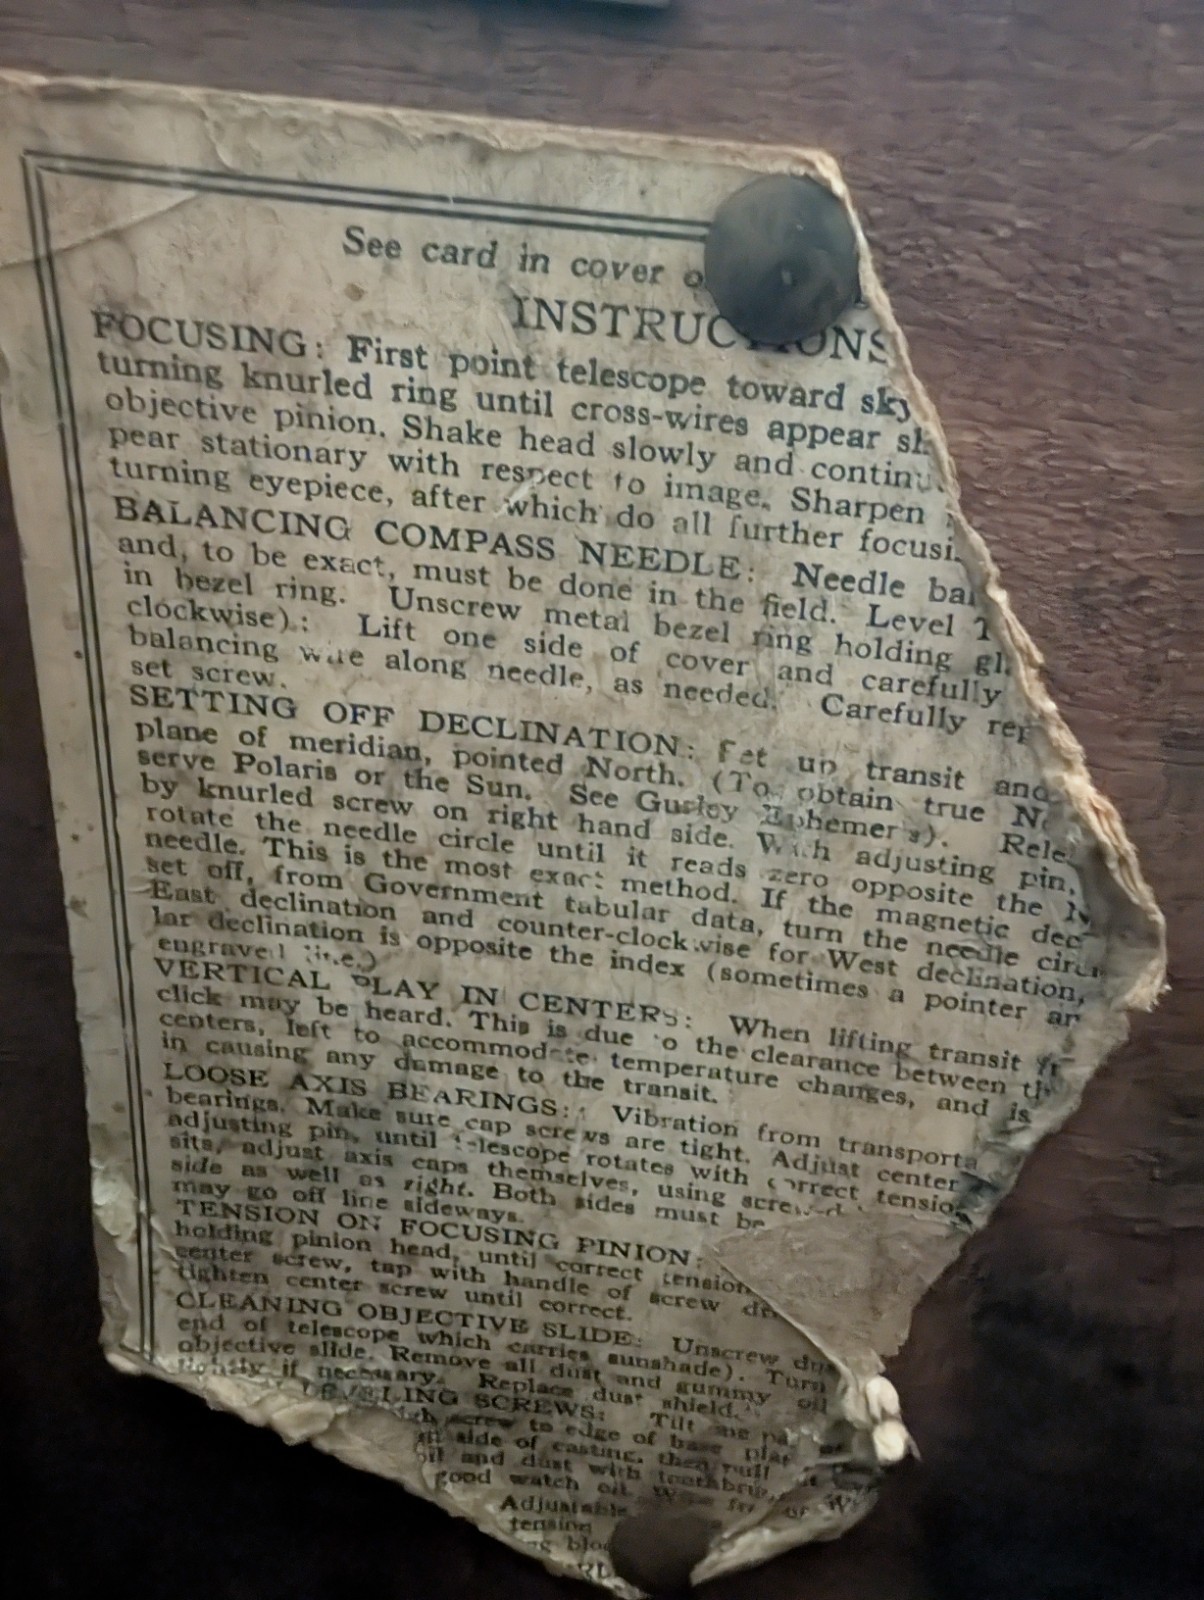 See card in cover
INSTRUCTIONS
FOCUSING: First point telescope toward sky
turning knurled ring until cross-wires appear
objective pinion. Shake head slowly and
pear stationary with respect to image. Sharpen
turning eyepiece, after which do all further
BALANCING COMPASS NEEDLE: Needle
and, to be exact, must be done in the field. Level
in bezel ring. Unscrew metal bezel ring holding
clockwise).: Lift one side of cover and carefully
balancing wire along needle, as needed. Carefully
set screw.
SETTING OFF DECLINATION: Set up transit and
plane of meridian, pointed North. (To obtain true
serve Polaris or the Sun. See Gurley Ephemeris).
by knurled screw on right hand side. With adjusting pin,
rotate the needle circle until it reads zero opposite the
needle. This is the most exact method. If the magnetic
set off, from Government tabular data, turn the needle
East declination and counter-clockwise for West declination,
lar declination is opposite the index (sometimes a pointer
engraved line.)
VERTICAL PLAY IN CENTERS: When lifting transit
click may be heard. This is due to the clearance between
centers, left to accommodate temperature changes, and is
in causing any damage to the transit.
LOOSE AXIS BEARINGS: Vibration from
bearings. Make sure cap screws are tight. Adjust center
adjusting pin, until telescope rotates with correct
sits, adjust axis caps themselves, using
side as well as right. Both sides must be
may go off line sideways.
TENSION ON FOCUSING PINION:
holding pinion head, until correct tension
center screw, tap with handle of screw
tighten center screw until correct.
CLEANING OBJECTIVE SLIDE: Unscrew
end of telescope which carries sunshade). Turn
objective slide. Remove all dust and gummy oil
lightly if necessary. Replace dust shield.
LEVELING SCREWS: Tilt
screw to edge of base
side of casting, then pull
oil and dust with
good watch oil.
Adjustable
tension